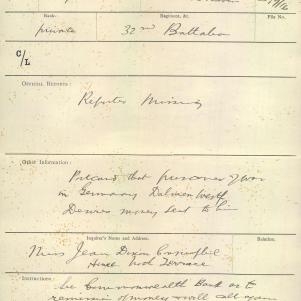 Rank.
Regiment, &c.
File No.
Private
32nd Battalion
C/L
OFFICIAL REPORTS :
Reported Missing
Other Information :
Postcard that prisoner of war
in Germany Dalmen West
Desires money sent to him
Inquirer's Name and Address.
Relation.
Miss Jean Dixon
Terrace
Instructions :
Commonwealth Bank as to
remission of money & will